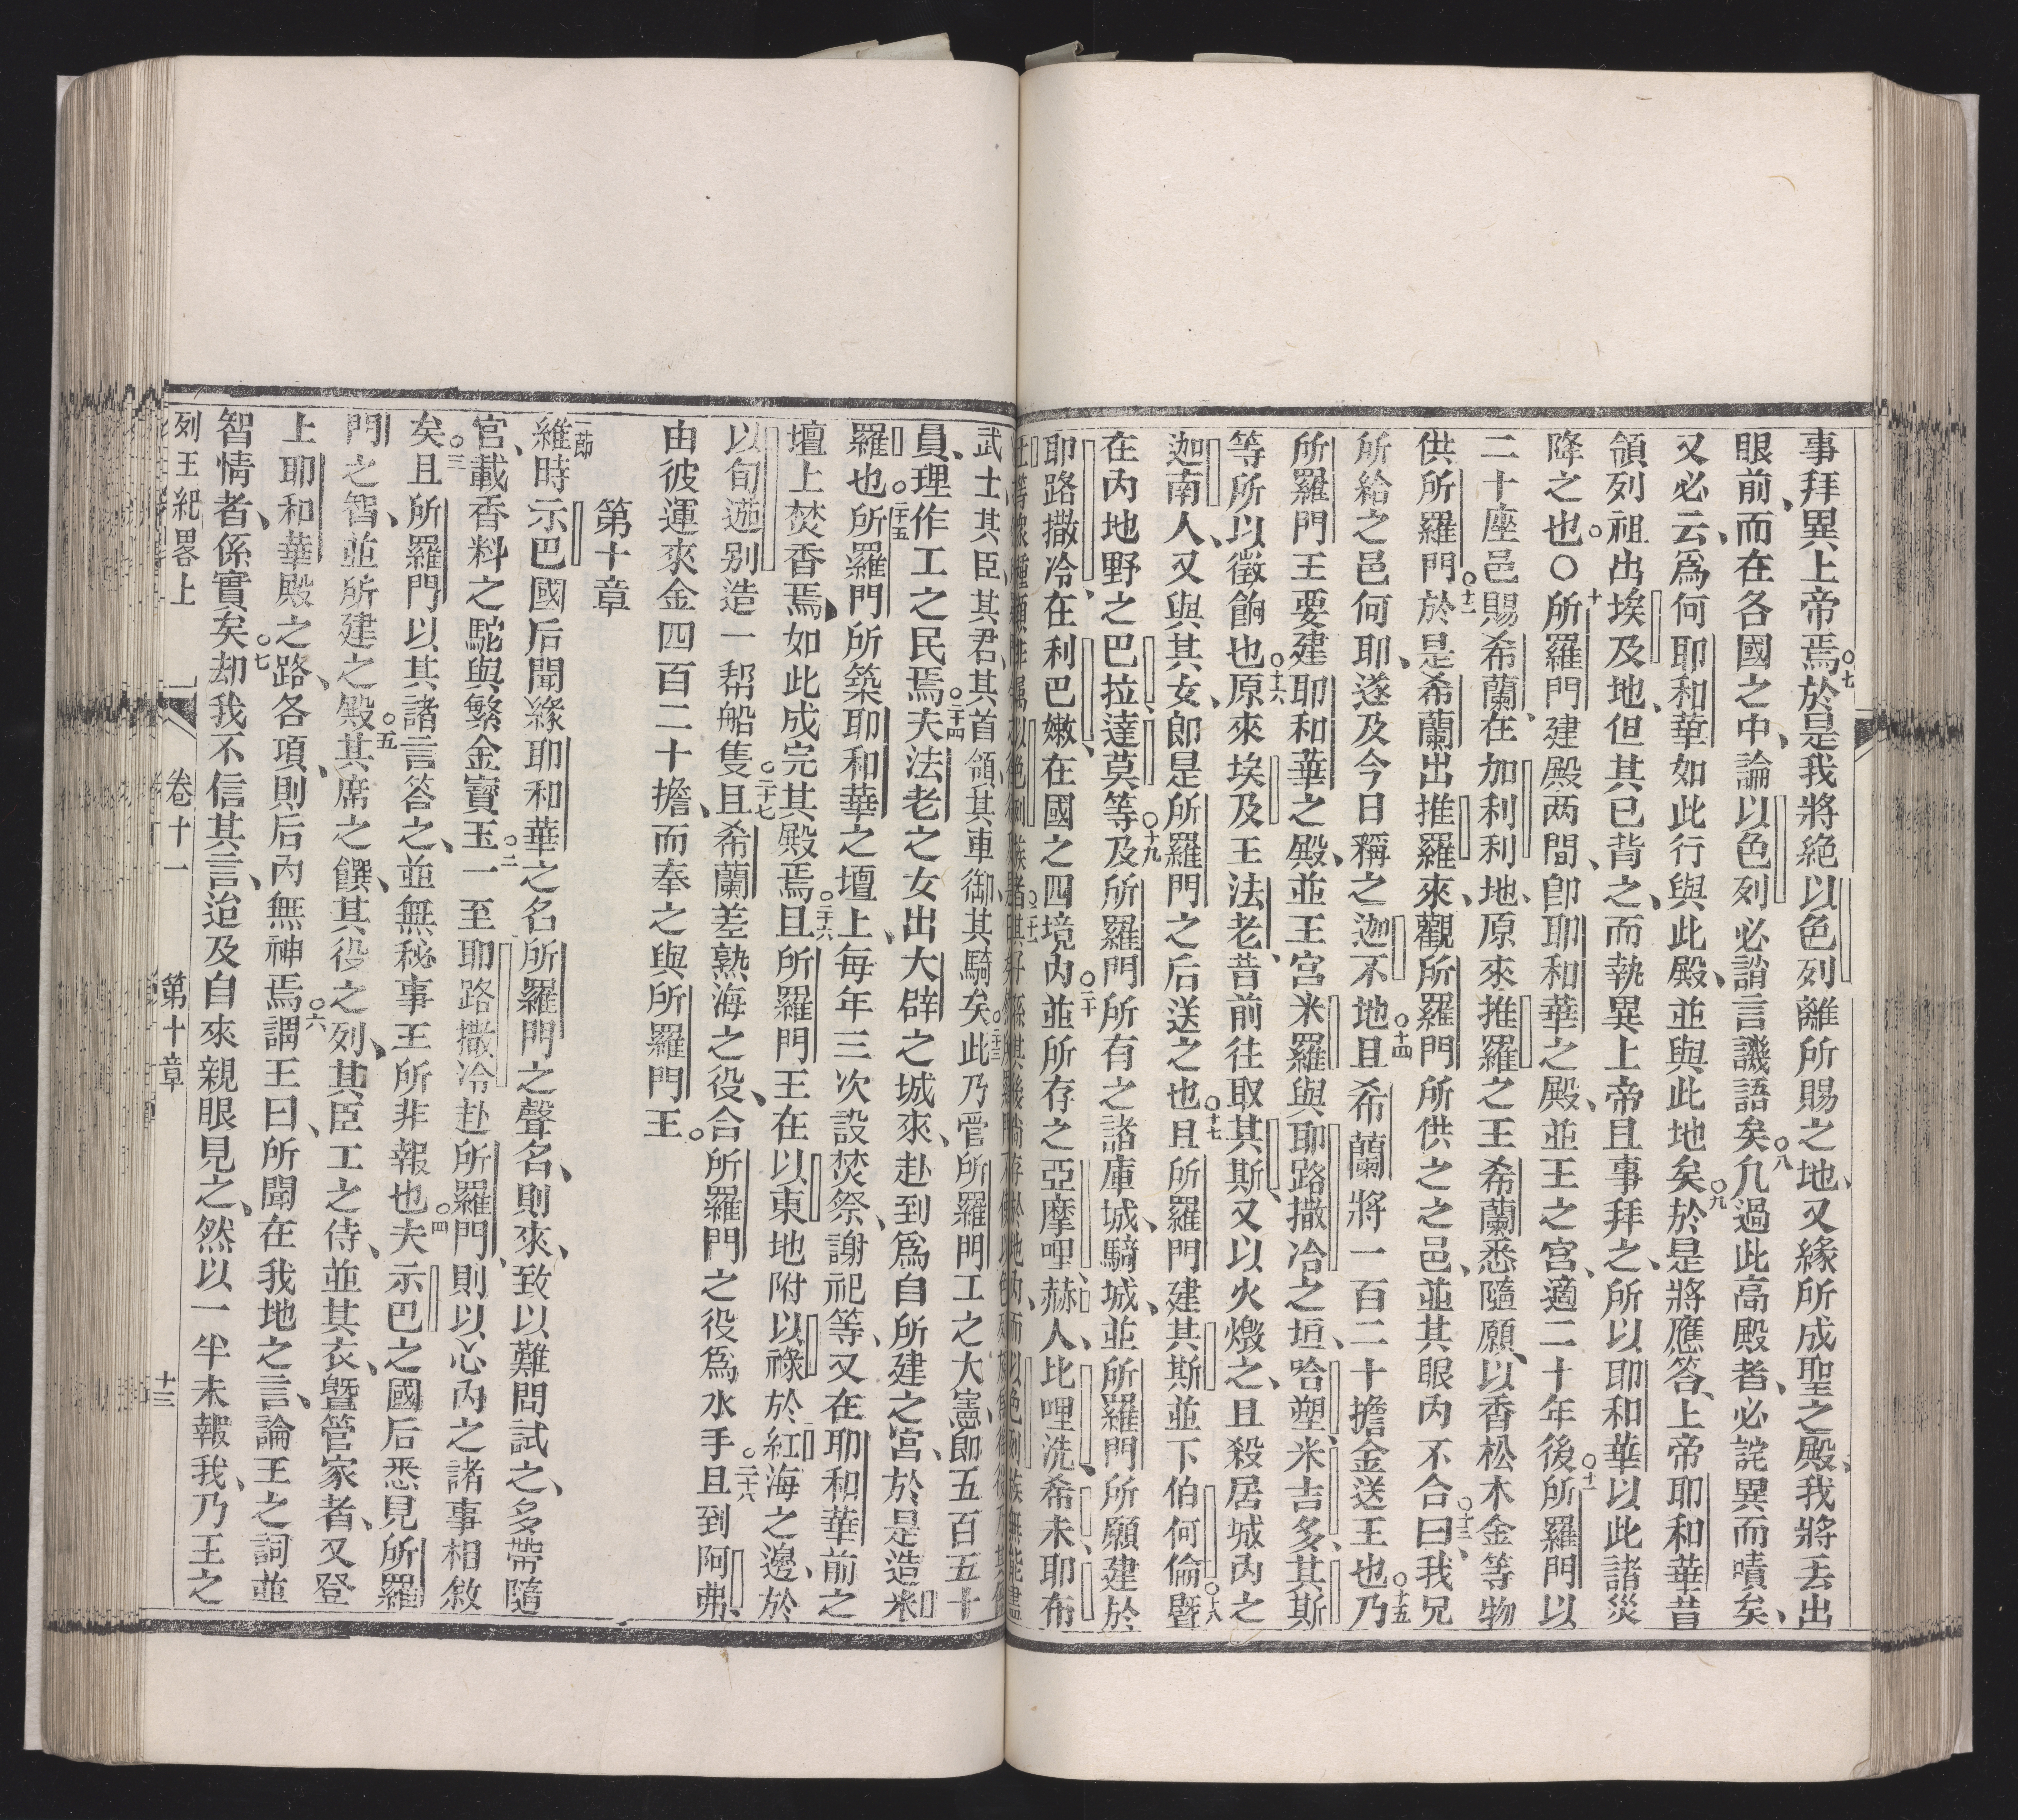 事拜異上帝焉○七於是我將絕以色列離所賜之地、又緣所成聖之殿、我將丟出
眼前、而在各國之中、論以色列必誚言譏語矣○八凢過此高殿者、必詫異而嘖矣、
又必云、爲何耶和華如此行與此殿、並與此地矣○九於是將應答、上帝耶和華昔
領列祖出埃及地、但其已背之、而執異上帝且事拜之、所以耶和華以此諸災
降之也○○十所羅門建殿两間、卽耶和華之殿、並王之宮、適二十年後○十一所羅門以
二十座邑賜希蘭、在加利利地、原來推羅之王希蘭悉隨願、以香松木金等物
供所羅門○十二於是希蘭出推羅來、觀所羅門所供之之邑、並其眼內不合○十三曰、我兄
所給之邑何耶、遂及今日稱之迦不地○十四且希蘭將一百二十擔金送王也○十五乃
所羅門王要建耶和華之殿、並王宮米羅與耶路撒冷之垣、哈塑、米吉多、其斯
等所以徵餉也○十六原來埃及王法老、昔前往取其斯、又以火燬之、且殺居城內之
迦南人、又與其女、卽是所羅門之后送之也○十七且所羅門建其斯並下伯何倫○十八暨
在內地野之巴拉、達莫等○十九及所羅門所有之諸庫城、騎城、並所羅門所願建於
耶路撒冷、在利巴嫩、在國之四境內○二十並所存之亞摩哩、赫人、比哩洗、希未、耶布
武士其臣、其君、其首領、其車御、其騎矣○二十三此乃管所羅門工之大憲、卽五百五十
員、理作工之民焉○二十四夫法老之女出大辟之城來、赴到爲自所建之宮、於是造米
羅也○二十五所羅門所築耶和華之壇上、每年三次設焚祭、謝祀等、又在耶和華前之
壇上焚香焉、如此成完其殿焉○二十六且所羅門王在以東地附以祿於紅海之邊、於
以旬遊别造一帮船隻○二十七且希蘭差熟海之役、合所羅門之役爲水手○二十八且到阿弗、
由彼運來金四百二十擔、而奉之與所羅門王○
第十章
一節維時示巴國后聞緣耶和華之名所羅門之聲名、則來、致以難問試之、多帶隨
官、載香料之駝與繁金寶玉○二一至耶路撒冷赴所羅門、則以心內之諸事相敘
矣○三且所羅門以其諸言答之、並無秘事王所非報也○四夫示巴之國后悉見所羅
門之智、並所建之殿○五其席之饌、其役之列、其臣工之侍、並其衣、曁管家者、又登
上耶和華殿之路、各項、則后內無神焉○六謂王曰、所聞在我地之言、論王之詞並
智情者、係實矣○七却我不信其言、迨及自來親眼見之、然以一半未報我、乃王之
列王紀畧上 卷十一 第十章 十三